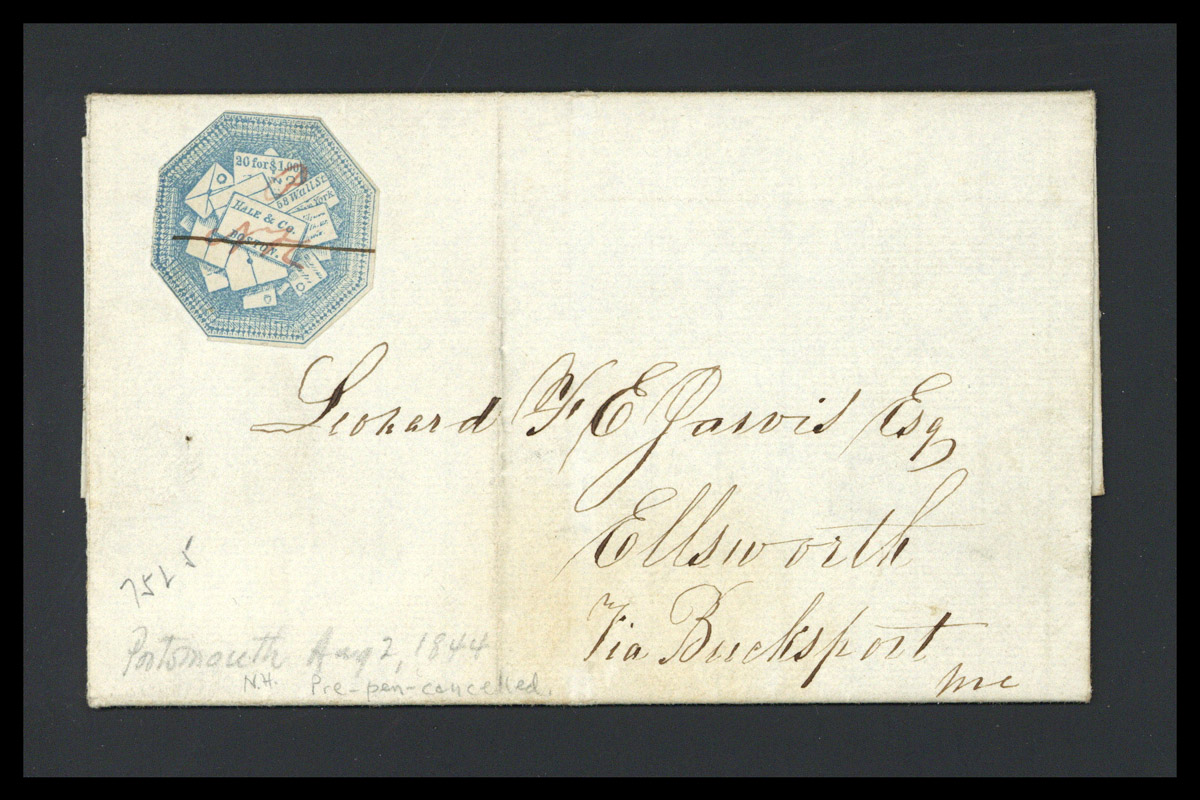 20 for $1.00
58 Wall St.
New York
HALE & CO.
BOSTON.
Leonard F E Jarvis Esq
Ellsworth
Via Bucksport
Me
7525
Portsmouth Aug 2, 1844
N.H. Pre-pen-cancelled.